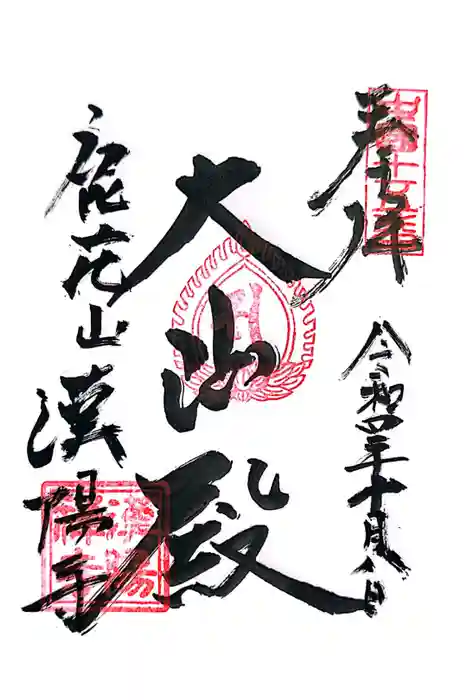 奉拝
令和四年十月八日
大悲殿
鹿苑山
漢陽寺